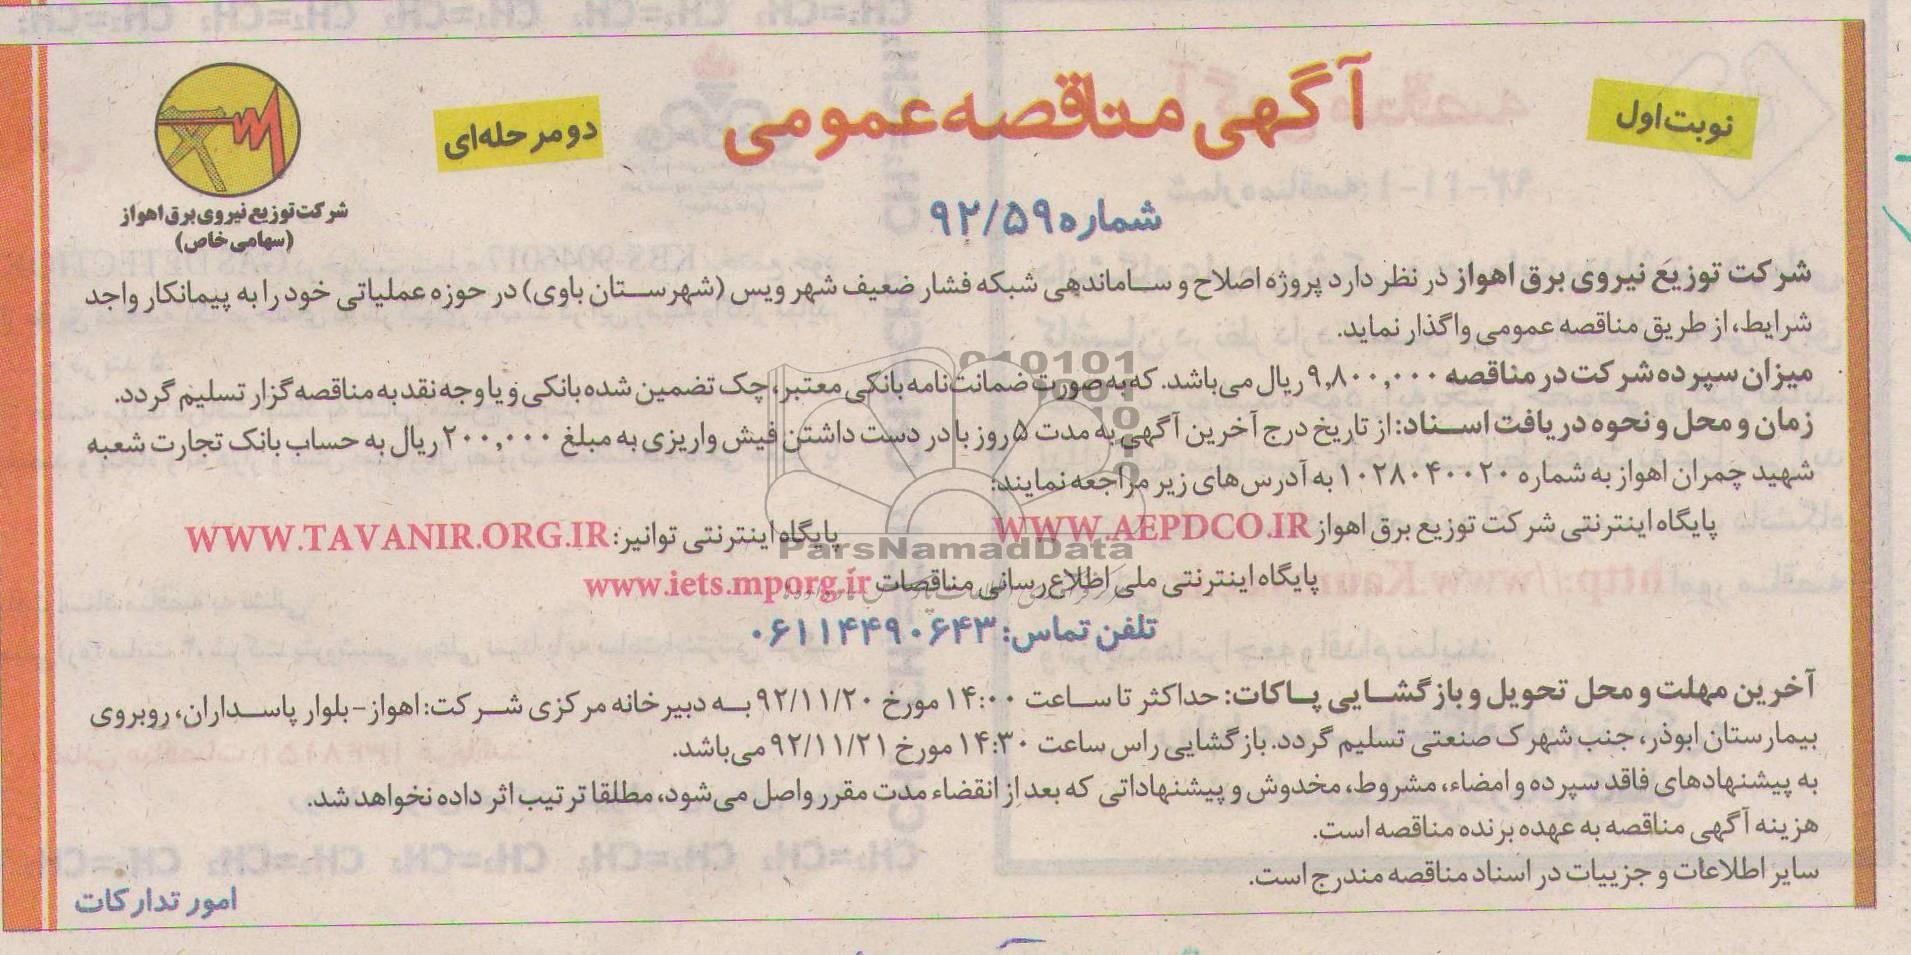 نوبت اول
آگهی مناقصه عمومی
دو مرحله‌ای
شرکت توزیع نیروی برق اهواز
(سهامی خاص)
شماره ۹۲/۵۹
شرکت توزیع نیروی برق اهواز در نظر دارد پروژه اصلاح و ساماندهی شبکه فشار ضعیف شهر ویس (شهرستان باوی) در حوزه عملیاتی خود را به پیمانکار واجد
شرایط، از طریق مناقصه عمومی واگذار نماید.
میزان سپرده شرکت در مناقصه ۹,۸۰۰,۰۰۰ ریال می‌باشد. که به صورت ضمانت‌نامه بانکی معتبر، چک تضمین شده بانکی و یا وجه نقد به مناقصه گزار تسلیم گردد.
زمان و محل و نحوه دریافت اسناد: از تاریخ درج آخرین آگهی به مدت ۵ روز با در دست داشتن فیش واریزی به مبلغ ۲۰۰,۰۰۰ ریال به حساب بانک تجارت شعبه
شهید چمران اهواز به شماره ۱۰۲۸۰۴۰۰۲۰ به آدرس‌های زیر مراجعه نمایند:
پایگاه اینترنتی شرکت توزیع برق اهواز WWW.AEPDCO.IR پایگاه اینترنتی توانیر: WWW.TAVANIR.ORG.IR
پایگاه اینترنتی ملی اطلاع رسانی مناقصات www.iets.mporg.ir
تلفن تماس: ۰۶۱۱۴۴۹۰۶۴۳
آخرین مهلت و محل تحویل و بازگشایی پاکات: حداکثر تا ساعت ۱۴:۰۰ مورخ ۹۲/۱۱/۲۰ به دبیرخانه مرکزی شرکت: اهواز- بلوار پاسداران، روبروی
بیمارستان ابوذر، جنب شهرک صنعتی تسلیم گردد. بازگشایی راس ساعت ۱۴:۳۰ مورخ ۹۲/۱۱/۲۱ می‌باشد.
به پیشنهادهای فاقد سپرده و امضاء، مشروط، مخدوش و پیشنهاداتی که بعد از انقضاء مدت مقرر واصل می‌شود، مطلقا ترتیب اثر داده نخواهد شد.
هزینه آگهی مناقصه به عهده برنده مناقصه است.
سایر اطلاعات و جزییات در اسناد مناقصه مندرج است.
امور تدارکات
ParsNamadData